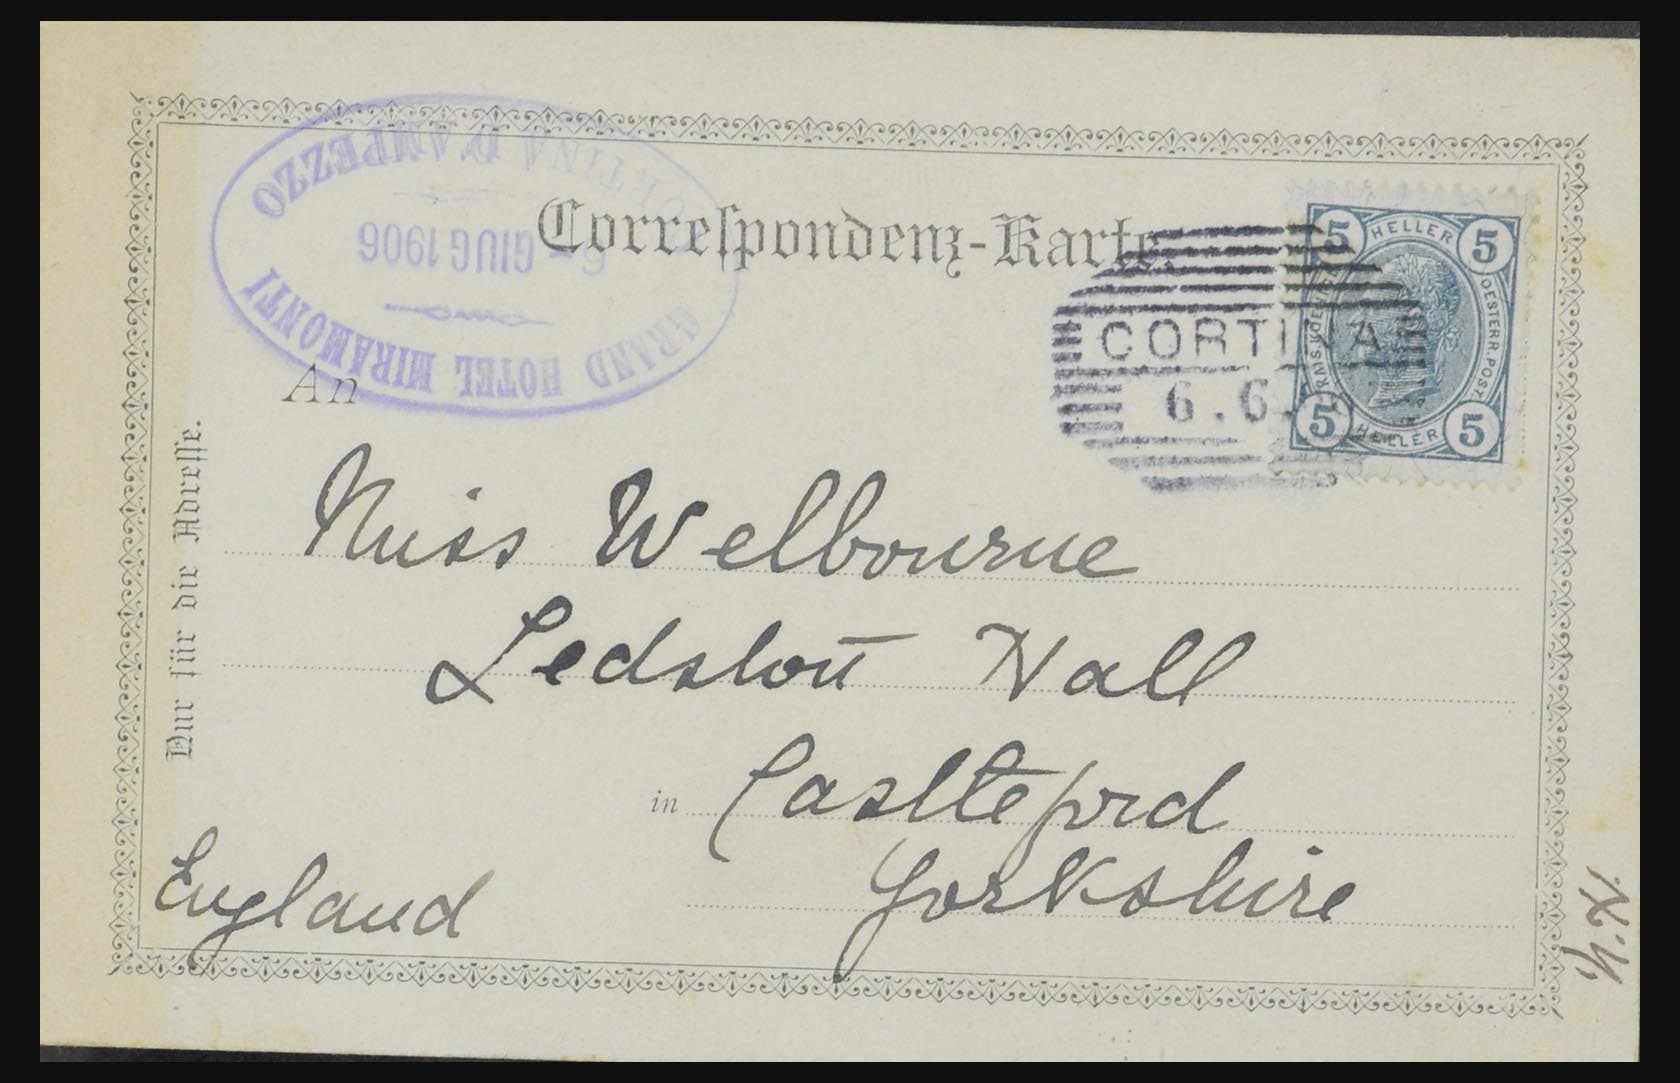 GRAND HOTEL MIRAMONTI
6 - GIUG 1906
CORTINA D'AMPEZZO
Correſpondenz-Karte.
5 HELLER 5
OESTERR. POST
5 HELLER 5
CORTINA
6.6.
An
Nur für die Adreſſe.
Miss Welbourne
Ledston Hall
in Castleford
Yorkshire
England